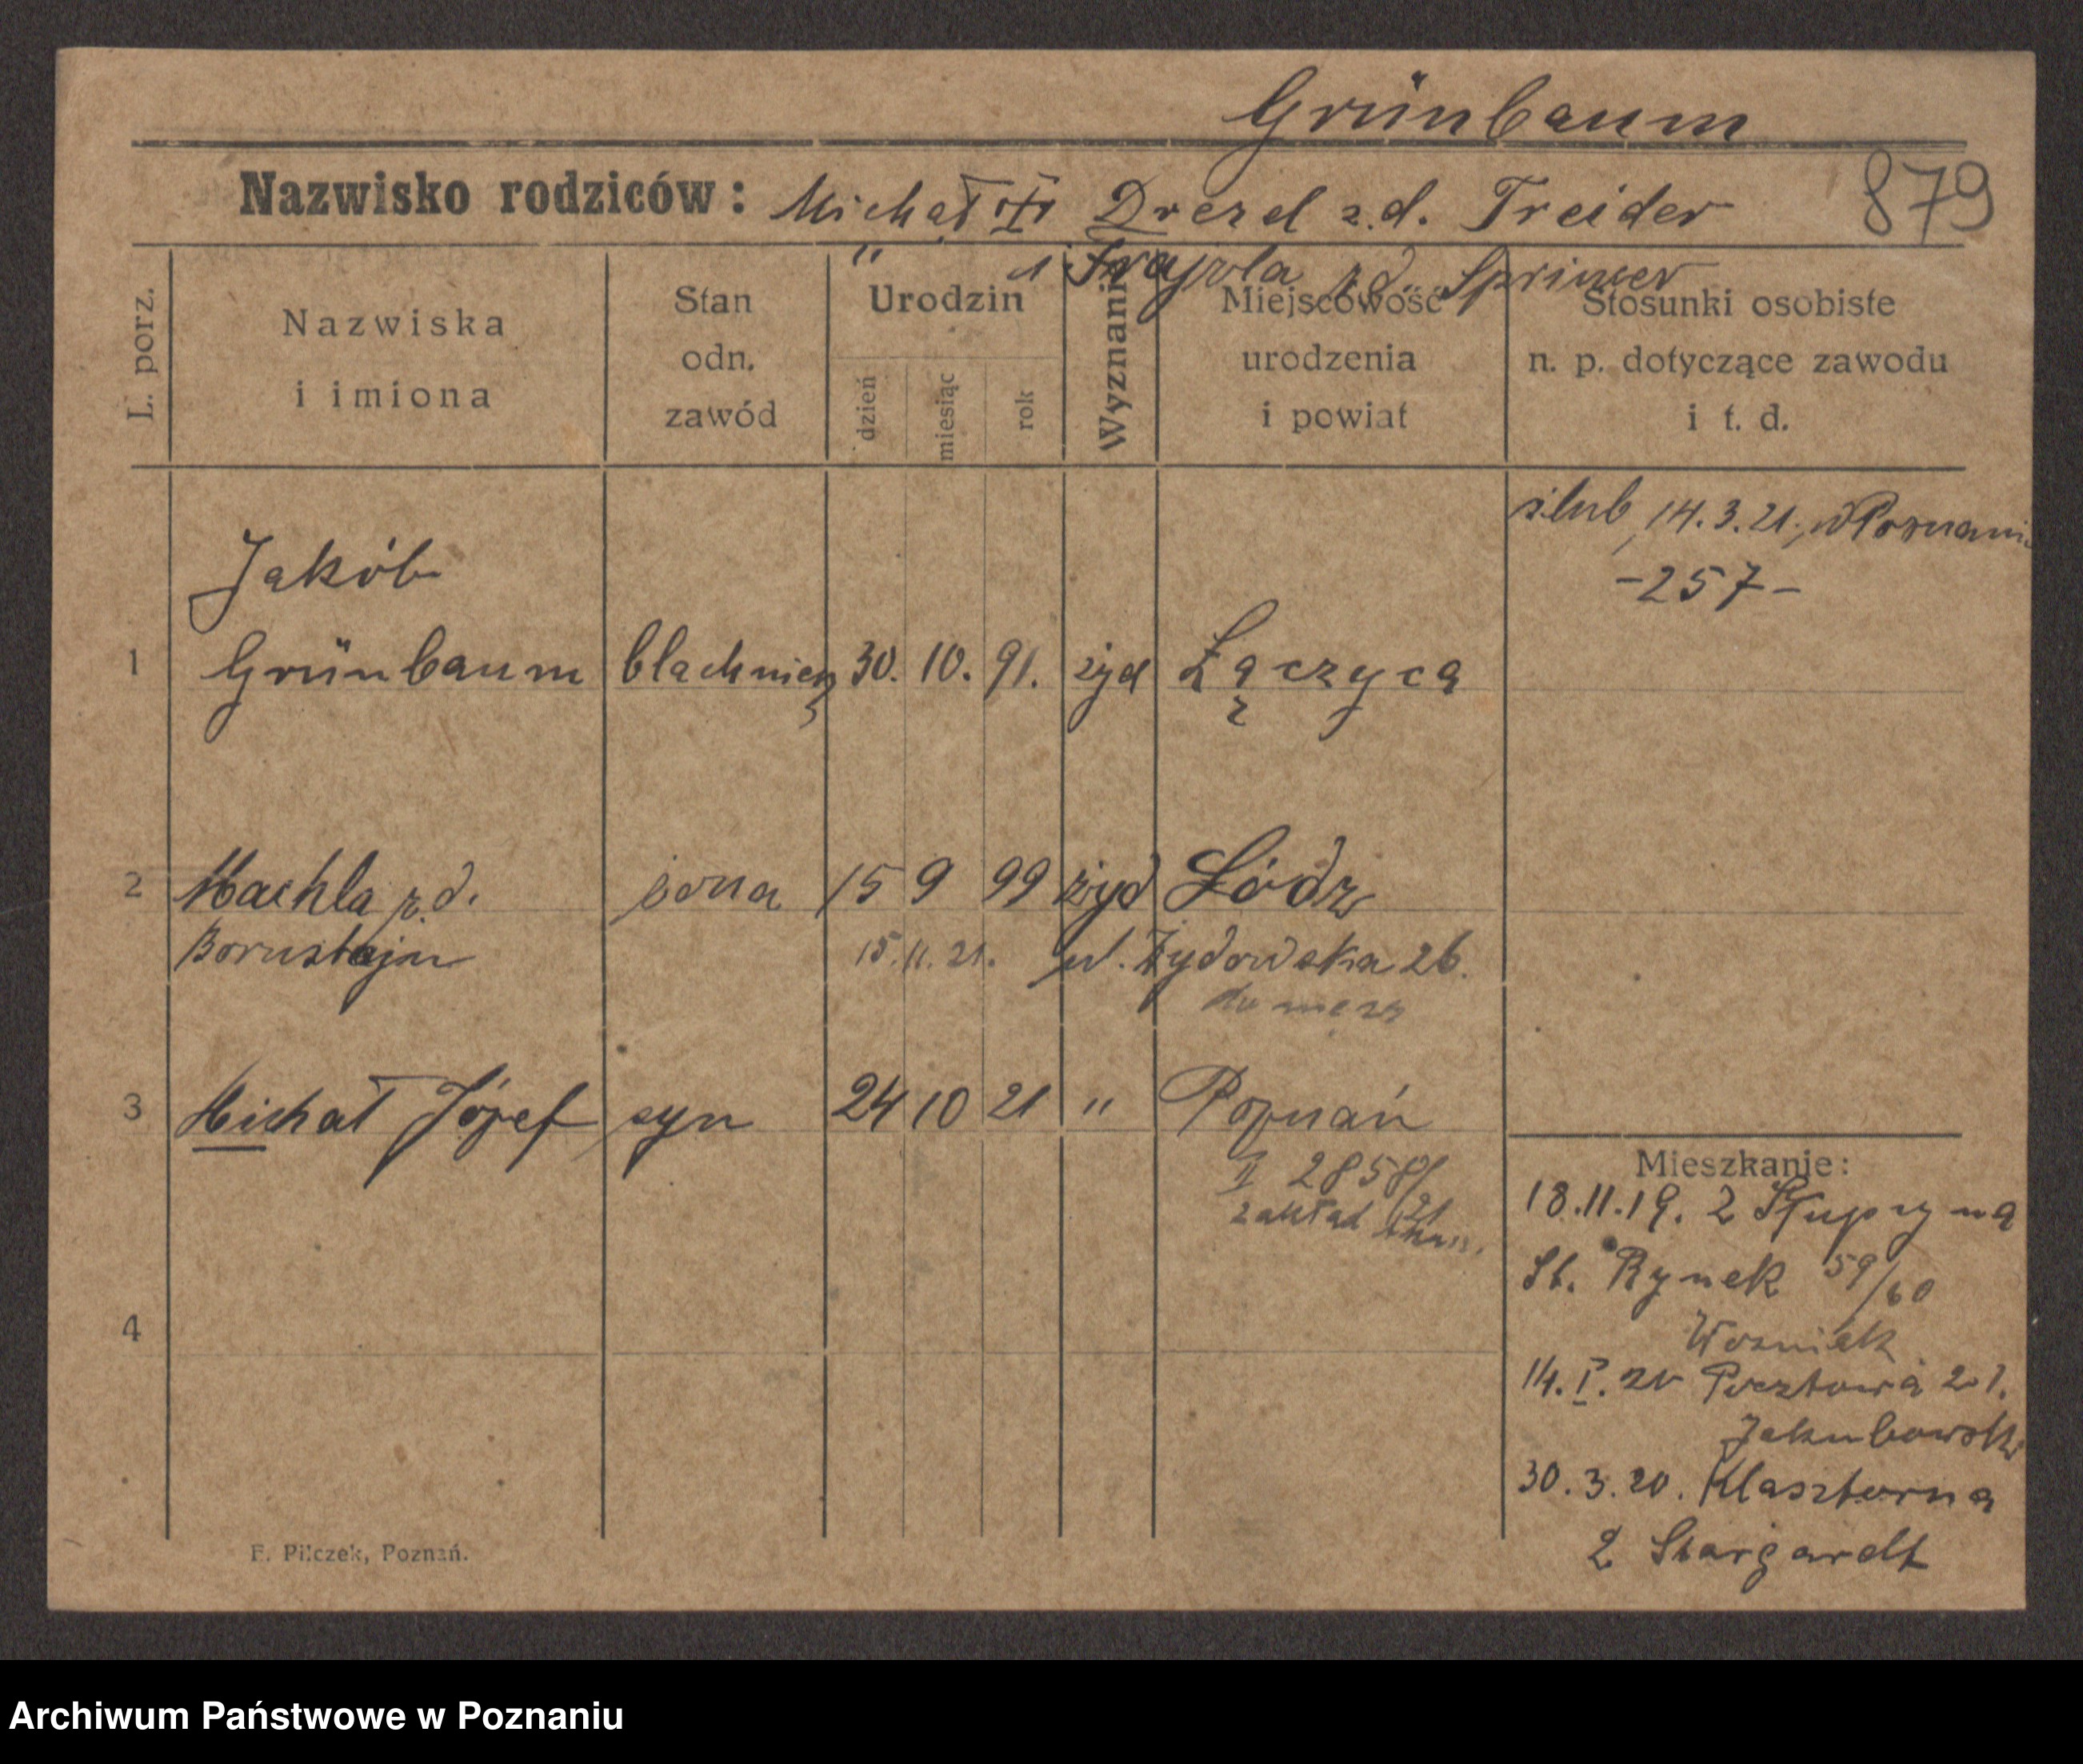 Grünbaum
Nazwisko rodziców: Michał Drezel z.d. Treider
879
" i Frajola z d. Springer
L. porz.
Nazwiska
i imiona
Stan
odn.
zawód
Urodzin
dzień
miesiąc
rok
Wyznanie
Miejscowość
urodzenia
i powiat
Stosunki osobiste
n. p. dotyczące zawodu
i t. d.
ślub 14.3.21, w Poznaniu
-257-
Jakób
1 Grünbaum blachnierz 30. 10. 91. żyd Łączyca
2 Machla z d. żona 15 9 99 żyd Łódz
Bornstajn 15.11.21. ul. Żydowska 26.
do męża
3 Michał Józef syn 24 10 21 " Poznań
II 2858/21
zakład
Mieszkanie:
18.11.19. z Słupzyna
St. Rynek 59/60
Wozniak
14.I.20 Pocztowa 21.
Jakubowski
30.3.20. Klasztorna
2 Stargardt
4
F. Pilczek, Poznań.
Archiwum Państwowe w Poznaniu